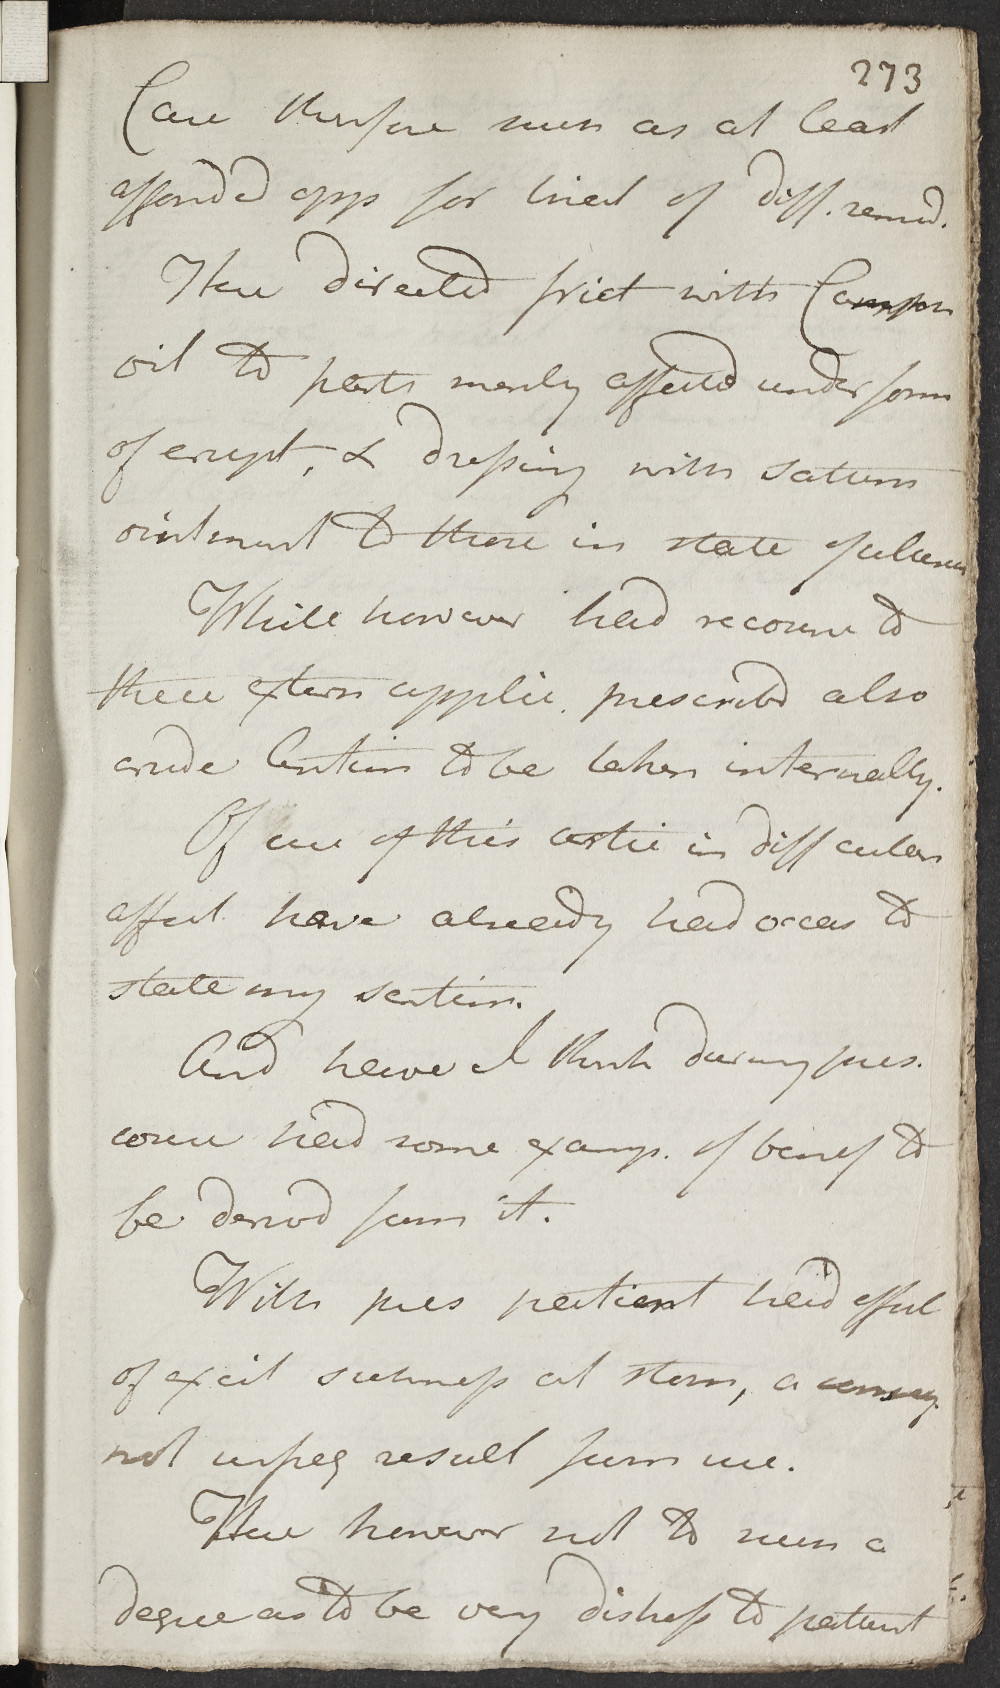 273
Case therefore seen as at least
afforded opp for trial of diff. remed.
Here directed frict with Camphor
oil to parts merely affected under form
of erupt, & dressing with saturn
ointment to those in state of ulcerat
While however had recourse to
these extern applic. prescribd also
crude Antim to be taken internally.
Of use of this article in diff cutan
affect have already had occas to
state my sentim.
And have I think during pres.
course had some examp. of benef to
be derivd from it.
With pres patient had effect
of excit sickness at stom, a
not unfreq result from use.
Here however not to such a
degree as to be very distress to patient